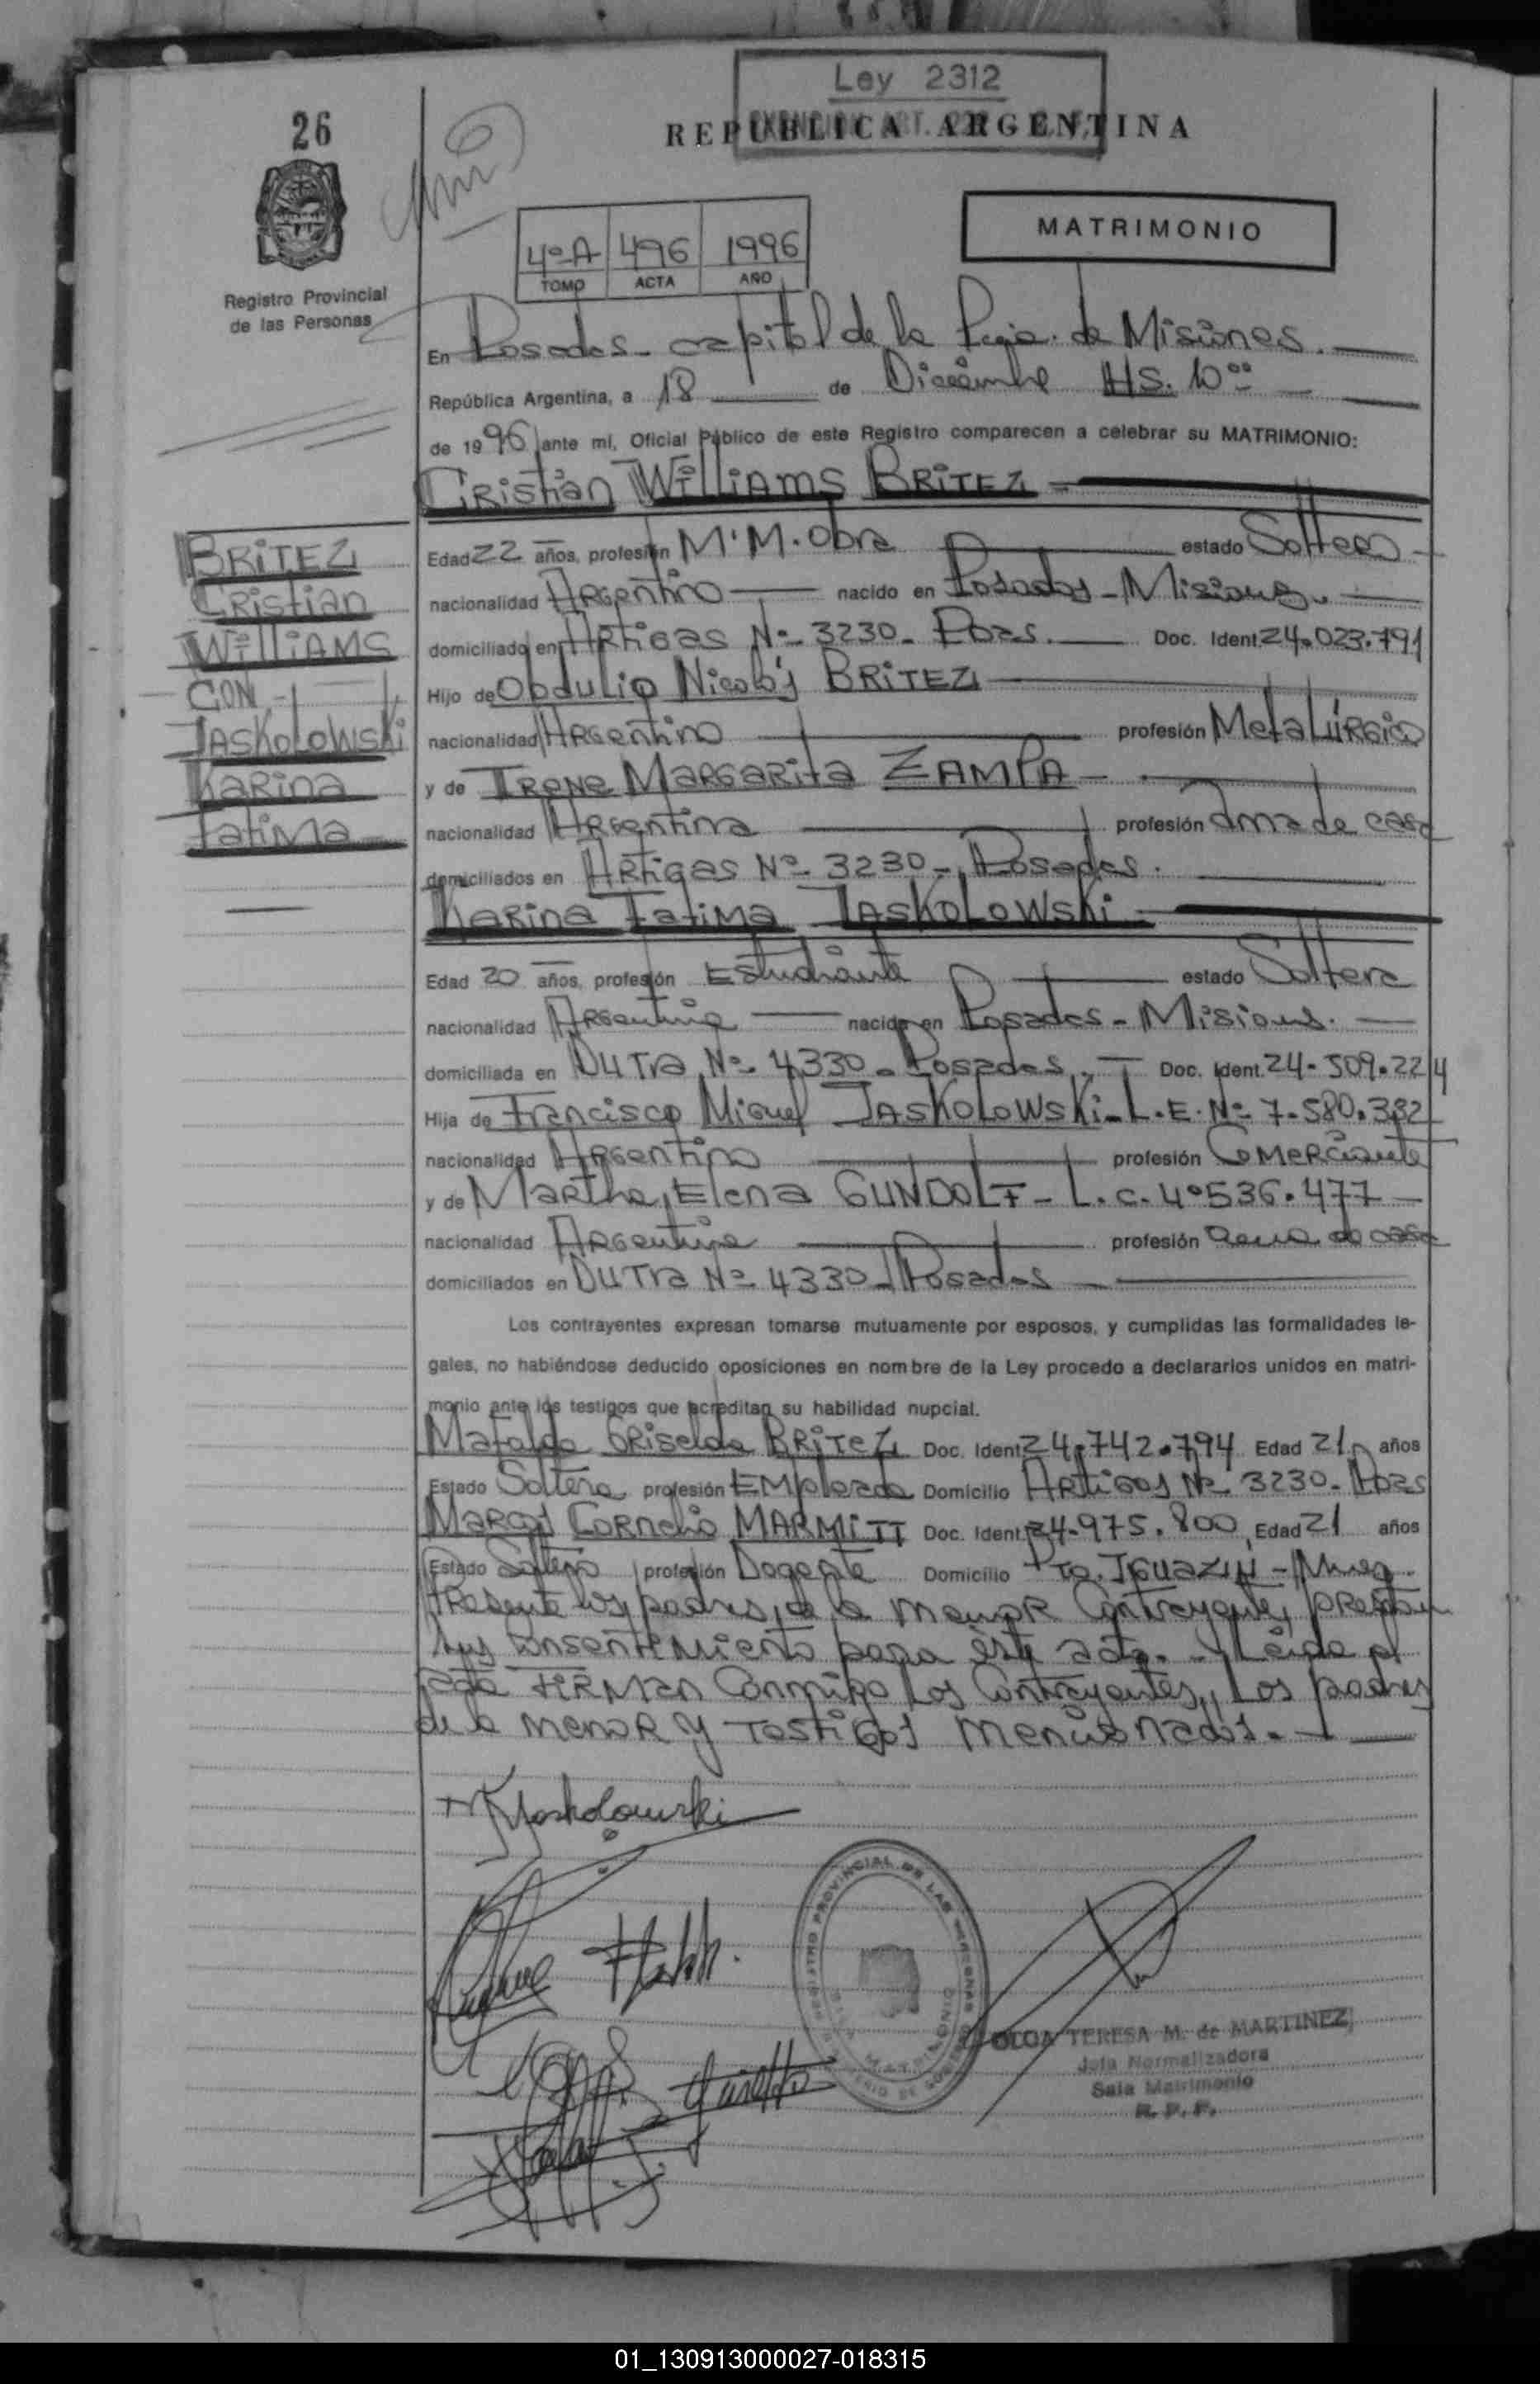 Ley 2312
26
REPUBLICA ARGENTINA
MATRIMONIO
4º A 496 1996
TOMO ACTA AÑO
Registro Provincial
de las Personas
En Posadas - capital de la Pcia. de Misiones.
República Argentina, a 18 de Diciembre HS. 10°°
de 1996 ante mí, Oficial Público de este Registro comparecen a celebrar su MATRIMONIO:
Cristian Williams BRITEZ -
BRITEZ
Cristian
Williams
CON -
JASKOLOWSKI
Karina
Fatima
Edad 22 años, profesión M.M. Obra estado Soltero -
nacionalidad Argentino nacido en Posadas - Misiones.
domiciliado en Artigas Nº 3230 - Pdas. Doc. Ident. 24.023.791
Hijo de Obdulio Nicolás BRITEZ
nacionalidad Argentino profesión Metalúrgico
y de Irene Margarita ZAMPA -
nacionalidad Argentina profesión Ama de casa
domiciliados en Artigas Nº 3230 - Posadas.
Karina Fatima JASKOLOWSKI -
Edad 20 años, profesión Estudiante estado Soltera
nacionalidad Argentina nacida en Posadas - Misiones.
domiciliada en DUTRA Nº 4330 - Posadas. Doc. Ident. 24.509.224
Hija de Francisco Miguel JASKOLOWSKI - L.E. Nº 7.580.382
nacionalidad Argentino profesión Comerciante
y de Martha Elena GUNDOLF - L.C. 4.536.477 -
nacionalidad Argentina profesión ama de casa
domiciliados en DUTRA Nº 4330 - Posadas -
Los contrayentes expresan tomarse mutuamente por esposos, y cumplidas las formalidades le-
gales, no habiéndose deducido oposiciones en nombre de la Ley procedo a declararlos unidos en matri-
monio ante los testigos que acreditan su habilidad nupcial.
Mafalda Griselda BRITEZ Doc. Ident. 24.742.794 Edad 21 años
Estado Soltera profesión Empleada Domicilio Artigas Nº 3230 - Pdas
Marcos Cornelio MARMITT Doc. Ident. 24.975.800 Edad 21 años
Estado Soltero profesión Docente Domicilio Pto. IGUAZU -
Presente los padres, de la menor contrayente, prestan
sus consentimiento para éste acto. - Leída el
acta FIRMAN conmigo los contrayentes, los padres
de la menor y testigos mencionados. -
OLGA TERESA M. de MARTINEZ
Jefa Normalizadora
Sala Matrimonio
R. P. P.
01_130913000027-018315